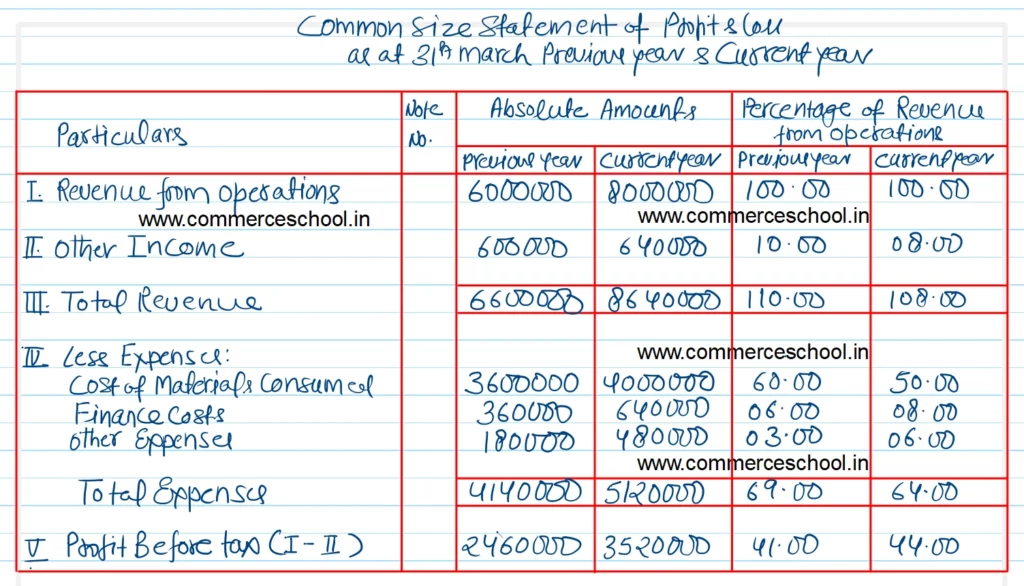 Common Size Statement of Profit & Loss
as at 31th march Previous year & Current year
Particulars Note No. Absolute Amounts Percentage of Revenue from operations
Previous year Current year Previous year Current year
I. Revenue from operations 6000000 8000000 100.00 100.00
www.commerceschool.in www.commerceschool.in
II. Other Income 600000 640000 10.00 08.00
III. Total Revenue 6600000 8640000 110.00 108.00
www.commerceschool.in
IV Less Expenses:
Cost of Materials Consumed 3600000 4000000 60.00 50.00
Finance Costs 360000 640000 06.00 08.00
other Expenses 180000 480000 03.00 06.00
www.commerceschool.in
Total Expenses 4140000 5120000 69.00 64.00
V Profit Before tax (I-II) 2460000 3520000 41.00 44.00